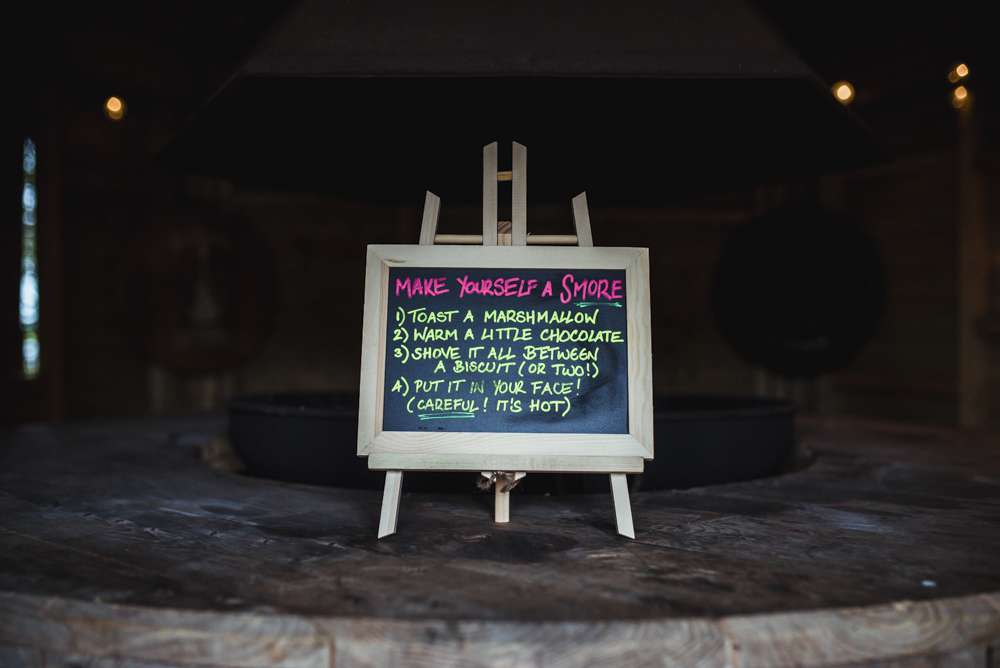 MAKE YOURSELF A SMORE
1) TOAST A MARSHMALLOW
2) WARM A LITTLE CHOCOLATE
3) SHOVE IT ALL BETWEEN
A BISCUIT (OR TWO!)
4) PUT IT IN YOUR FACE!
(CAREFUL! IT'S HOT)